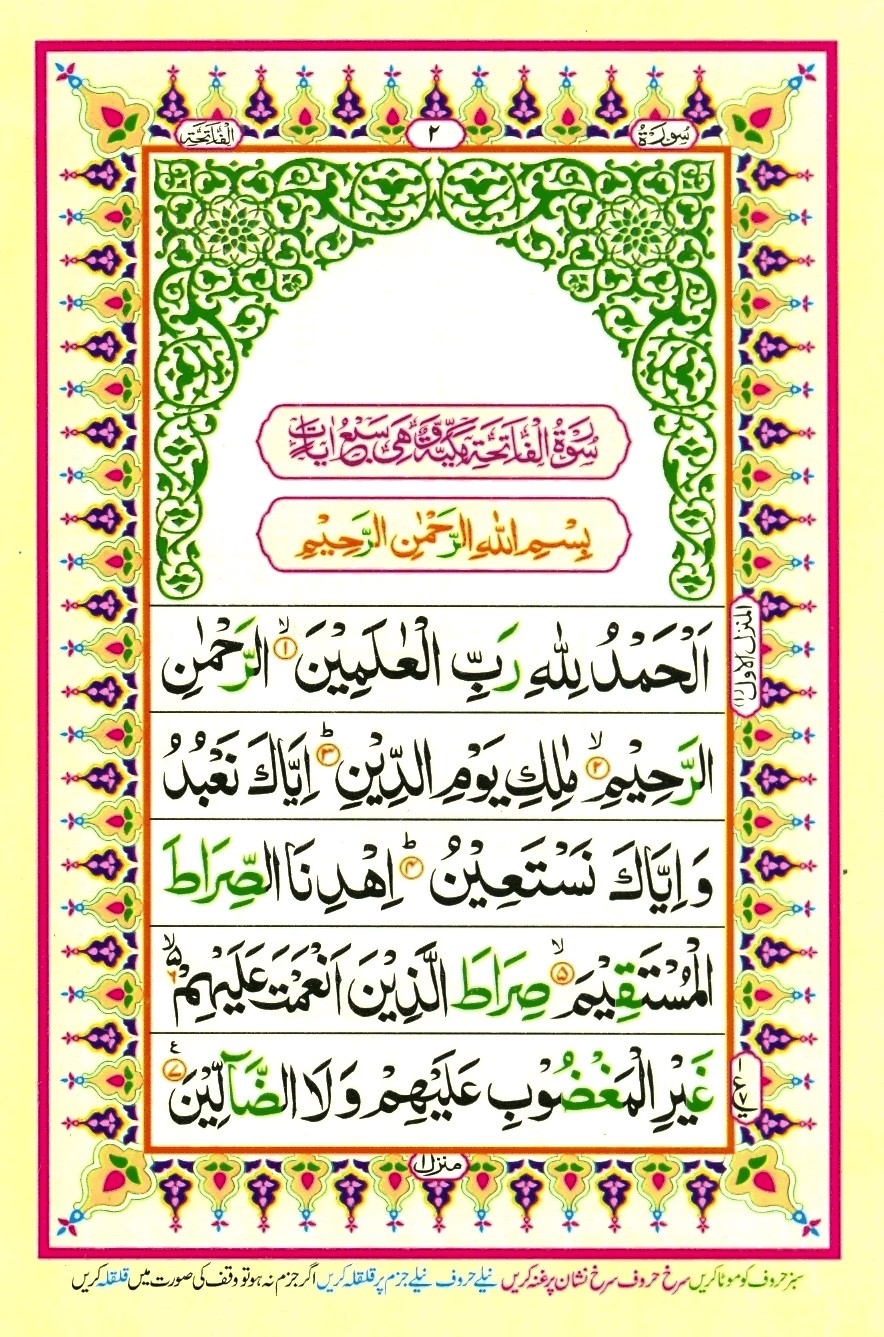 سُورَةُ ٢ الْفَاتِحَة
سُوْرَةُ الْفَاتِحَةِ مَكِّيَّةٌ وَّهِیَ سَبْعُ اٰیَاتٍ
بِسْمِ اللّٰهِ الرَّحْمٰنِ الرَّحِیْمِ
اَلْحَمْدُ لِلّٰهِ رَبِّ الْعٰلَمِیْنَ ۙ﴿۱﴾ الرَّحْمٰنِ
الرَّحِیْمِ ۙ﴿۲﴾ مٰلِكِ یَوْمِ الدِّیْنِ ؕ﴿۳﴾ اِیَّاكَ نَعْبُدُ
وَ اِیَّاكَ نَسْتَعِیْنُ ؕ﴿۴﴾ اِهْدِنَا الصِّرَاطَ
الْمُسْتَقِیْمَ ۙ﴿۵﴾ صِرَاطَ الَّذِیْنَ اَنْعَمْتَ عَلَیْهِمْ ۙ۵ ﴿۶﴾
غَیْرِ الْمَغْضُوْبِ عَلَیْهِمْ وَ لَا الضَّآلِّیْنَ ﴿۷﴾ ع
المنزل الاول
منزل ۱
سبز حروف کو موٹا کریں سرخ حروف سرخ نشان پر غنہ کریں نیلے حروف نیلے جزم پر قلقلہ کریں اگر جزم نہ ہو تو وقف کی صورت میں قلقلہ کریں